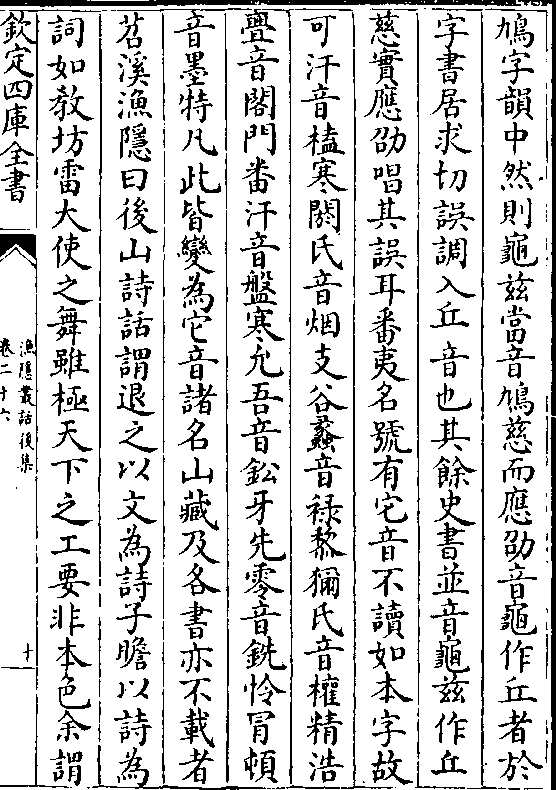 鳩字韻中然則龜兹當音鳩慈而應劭音龜作丘者於
字書居求切誤調入丘音也其餘史書並音龜兹作丘
慈實應劭唱其誤耳番夷名號有它音不讀如本字故
可汗音榼寒閼氏音烟支谷蠡音禄黎獮氏音權精浩
亹音閣門番汗音盤寒允吾音鈆牙先零音銑怜冐頓
音墨特凡此皆變為它音諸名山藏及各書亦不載者
苕溪漁隱曰後山詩話謂退之以文為詩子瞻以詩為
詞如教坊雷大使之舞雖極天下之工要非本色余謂
欽定四庫全書
漁隱叢話後集
卷二十六
十